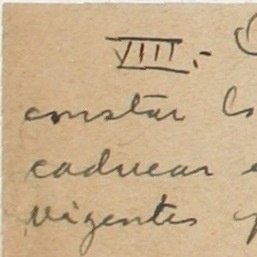 VIII.-
constar lo
caducan e
vigentes